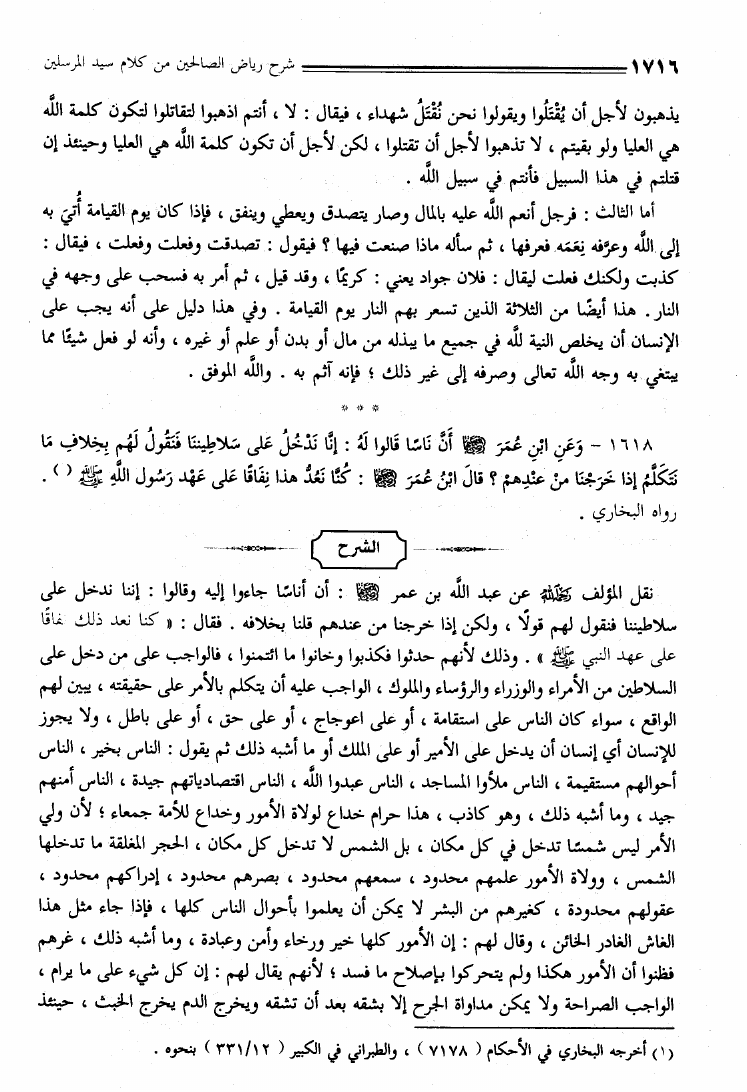 ١٧١٦ شرح رياض الصالحين من كلام سيد المرسلين
يذهبون لأجل أن يُقْتَلُوا ويقولوا نحن نُقْتَلُ شهداء ، فيقال : لا ، أنتم اذهبوا لتقاتلوا لتكون كلمة الله
هي العليا ولو بقيتم ، لا تذهبوا لأجل أن تقتلوا ، لكن لأجل أن تكون كلمة الله هي العليا وحينئذ إن
قتلتم في هذا السبيل فأنتم في سبيل الله .
أما الثالث : فرجل أنعم الله عليه بالمال وصار يتصدق ويعطي وينفق ، فإذا كان يوم القيامة أُتيَ به
إلى الله وعرَّفه نِعَمَه فعرفها ، ثم سأله ماذا صنعت فيها ؟ فيقول : تصدقت وفعلت وفعلت ، فيقال :
كذبت ولكنك فعلت ليقال : فلان جواد يعني : كريمًا ، وقد قيل ، ثم أمر به فسحب على وجهه في
النار . هذا أيضًا من الثلاثة الذين تسعر بهم النار يوم القيامة . وفي هذا دليل على أنه يجب على
الإنسان أن يخلص النية لله في جميع ما يبذله من مال أو بدن أو علم أو غيره ، وأنه لو فعل شيئًا مما
يبتغي به وجه الله تعالى وصرفه إلى غير ذلك ؛ فإنه آثم به . والله الموفق .
* * *
١٦١٨ - وَعَنِ ابْنِ عُمَرَ ﵄ أَنَّ نَاسًا قَالوا لَهُ : إِنَّا نَدْخُلُ عَلى سَلاطِيننا فَنَقُولُ لَهُم بِخِلافِ مَا
نَتَكَلَّمُ إِذا خَرَجْنَا مِنْ عنْدِهِمْ ؟ قالَ ابْنُ عُمَرَ ﵄ : كُنَّا نَعُدُّ هذا نِفَاقًا عَلى عَهْد رَسُول اللَّهِ ﷺ ( ) .
رواه البخاري .
الشرح
نقل المؤلف ﵀ عن عبد الله بن عمر ﵄ : أن أناسًا جاءوا إليه وقالوا : إننا ندخل على
سلاطيننا فنقول لهم قولًا ، ولكن إذا خرجنا من عندهم قلنا بخلافه . فقال : « كنا نعد ذلك نفاقًا
على عهد النبي ﷺ » . وذلك لأنهم حدثوا فكذبوا وخانوا ما ائتمنوا ، فالواجب على من دخل على
السلاطين من الأمراء والوزراء والرؤساء والملوك ، الواجب عليه أن يتكلم بالأمر على حقيقته ، يبين لهم
الواقع ، سواء كان الناس على استقامة ، أو على اعوجاج ، أو على حق ، أو على باطل ، ولا يجوز
للإنسان أي إنسان أن يدخل على الأمير أو على الملك أو ما أشبه ذلك ثم يقول : الناس بخير ، الناس
أحوالهم مستقيمة ، الناس ملأوا المساجد ، الناس عبدوا الله ، الناس اقتصادياتهم جيدة ، الناس أمنهم
جيد ، وما أشبه ذلك ، وهو كاذب ، هذا حرام خداع لولاة الأمور وخداع للأمة جمعاء ؛ لأن ولي
الأمر ليس شمسًا تدخل في كل مكان ، بل الشمس لا تدخل كل مكان ، الحجر المغلقة ما تدخلها
الشمس ، وولاة الأمور علمهم محدود ، سمعهم محدود ، بصرهم محدود ، إدراكهم محدود ،
عقولهم محدودة ، كغيرهم من البشر لا يمكن أن يعلموا بأحوال الناس كلها ، فإذا جاء مثل هذا
الغاش الغادر الخائن ، وقال لهم : إن الأمور كلها خير ورخاء وأمن وعبادة ، وما أشبه ذلك ، غرهم
فظنوا أن الأمور هكذا ولم يتحركوا بإصلاح ما فسد ؛ لأنهم يقال لهم : إن كل شيء على ما يرام ،
الواجب الصراحة ولا يمكن مداواة الجرح إلا بشقه بعد أن تشقه ويخرج الدم يخرج الخبث ، حينئذ
(١) أخرجه البخاري في الأحكام ( ٧١٧٨ ) ، والطبراني في الكبير ( ٣٣١/١٢ ) بنحوه .